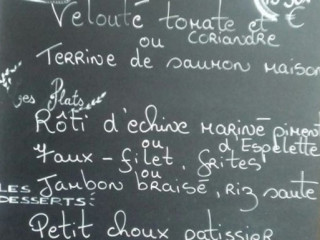 Velouté tomate et
ou coriandre €
Terrine de saumon maison
Les Plats
Rôti d'échine mariné piment
ou d'Espelette
Faux-filet, frites
ou
Jambon braisé, Riz sauté
LES DESSERTS:
Petit choux patissier